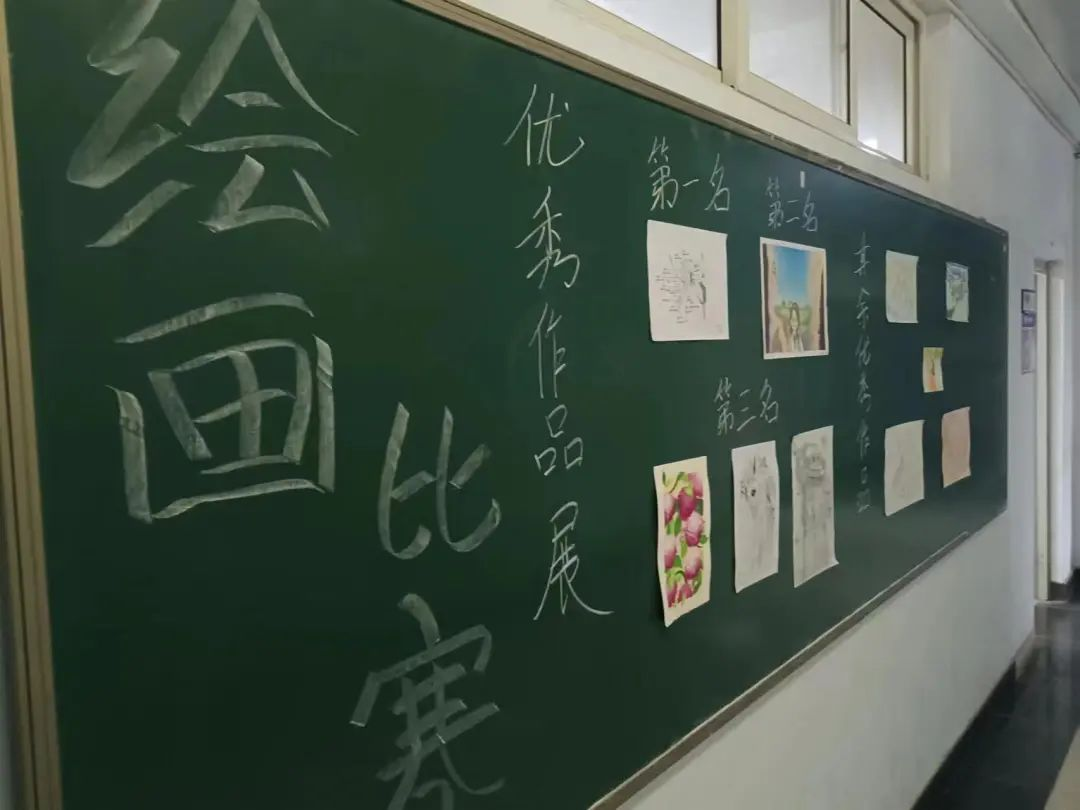 绘画
比赛
优秀作品展
第一名
第二名
第三名
其余优秀作品